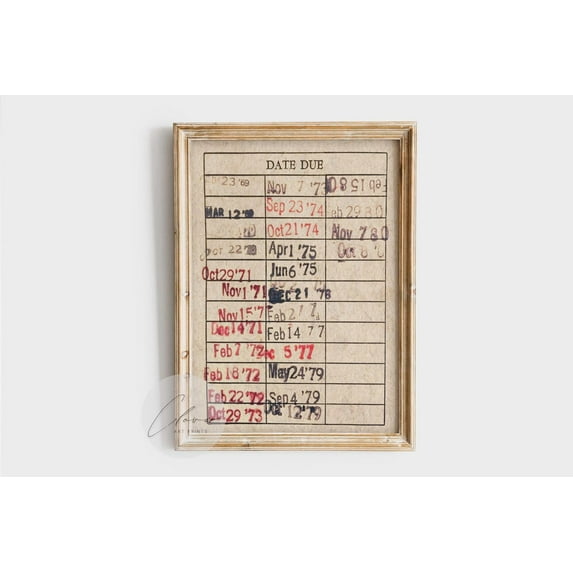 DATE DUE
23 '69
MAR 12 '70
22 '70
Oct 29 '71
Nov 1 '71
Nov 15 '7
Dec 14 '71
Feb 7 '72
Feb 18 '72
Feb 22 '72
Oct 29 '73
Nov 7 '73
Sep 23 '74
Oct 21 '74
Apr 1 '75
Jun 6 '75
DEC 21 '76
Feb 2 7
Feb 14 77
Dec 5 '77
May 24 '79
Sep 4 '79
Dec 12 '79
Feb 15 8 0
Feb 29 8 0
Nov 7 8 0
Oct 8
Clove
ART PRINTS